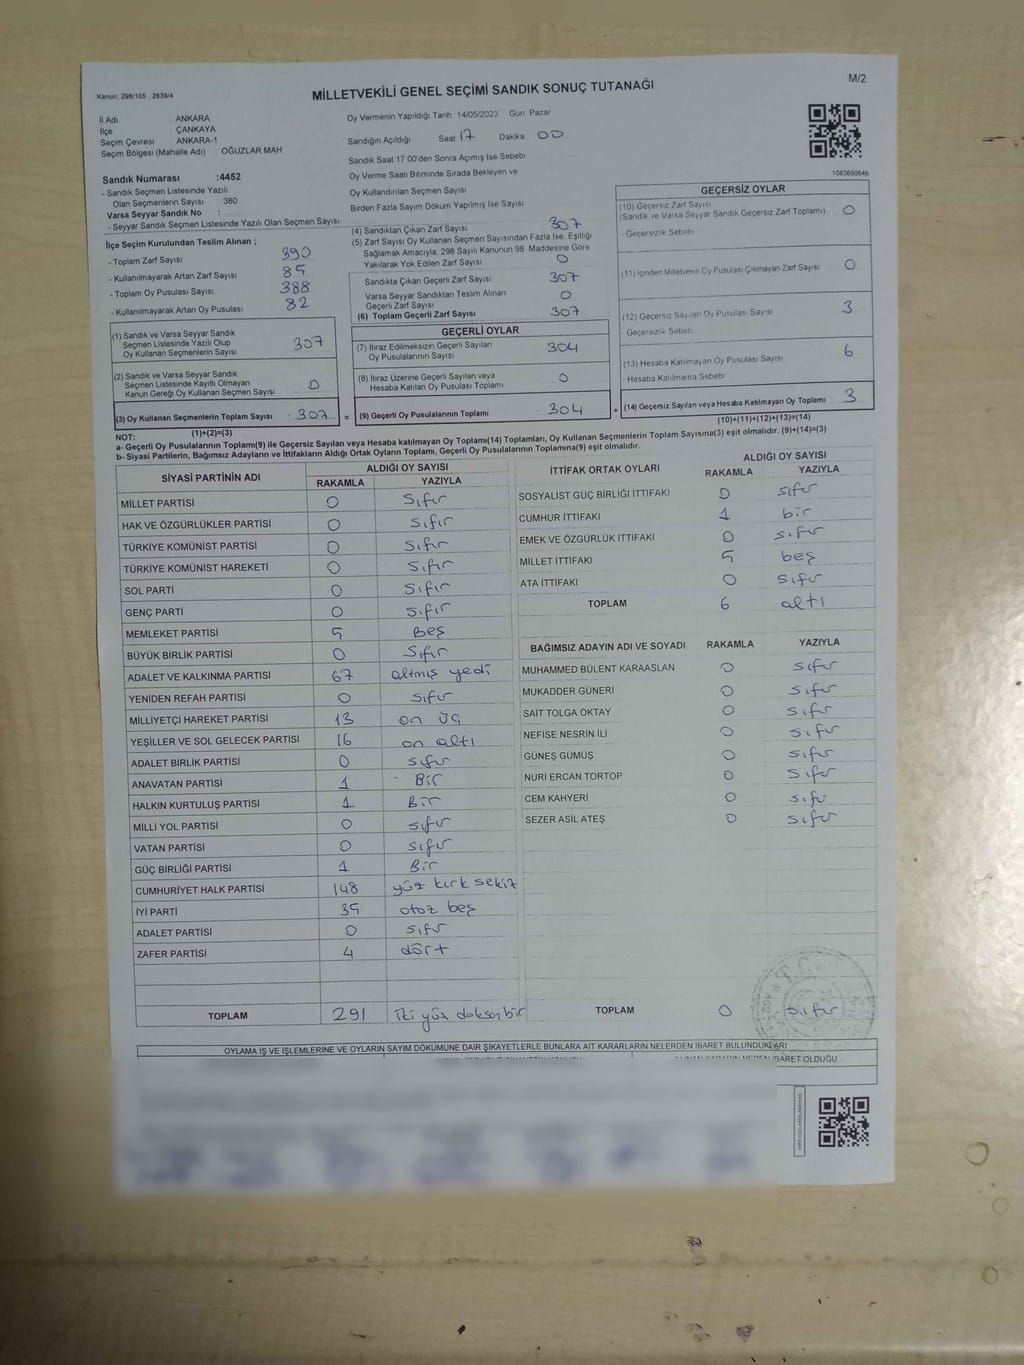 Kanun; 298/105 , 2839/4
MİLLETVEKİLİ GENEL SEÇİMİ SANDIK SONUÇ TUTANAĞI
M/2
İl Adı ANKARA
İlçe ÇANKAYA
Seçim Çevresi ANKARA-1
Seçim Bölgesi (Mahalle Adı) OĞUZLAR MAH
Oy Vermenin Yapıldığı Tarih 14/05/2023 Gün Pazar
Sandığın Açıldığı Saat 17 Dakika 00
Sandık Saat 17 00'den Sonra Açımış İse Sebebi
Oy Verme Saati Bitiminde Sırada Bekleyen ve
Oy Kullandırılan Seçmen Sayısı
Birden Fazla Sayım Döküm Yapılmış İse Sayısı
1083690646
Sandık Numarası :4452
- Sandık Seçmen Listesinde Yazılı
Olan Seçmenlerin Sayısı 380
Varsa Seyyar Sandık No :
- Seyyar Sandık Seçmen Listesinde Yazılı Olan Seçmen Sayısı
İlçe Seçim Kurulundan Teslim Alınan ;
- Toplam Zarf Sayısı 390
- Kullanılmayarak Artan Zarf Sayısı 85
- Toplam Oy Pusulası Sayısı 388
- Kullanılmayarak Artan Oy Pusulası 82
(1) Sandık ve Varsa Seyyar Sandık
Seçmen Listesinde Yazılı Olup
Oy Kullanan Seçmenlerin Sayısı 307
(2) Sandık ve Varsa Seyyar Sandık
Seçmen Listesinde Kayıtlı Olmayan
Kanun Gereği Oy Kullanan Seçmen Sayısı 0
(3) Oy Kullanan Seçmenlerin Toplam Sayısı 307 =
(1)+(2)=(3)
(4) Sandıktan Çıkan Zarf Sayısı 307
(5) Zarf Sayısı Oy Kullanan Seçmen Sayısından Fazla İse, Eşitliği
Sağlamak Amacıyla, 298 Sayılı Kanunun 98 Maddesine Göre
Yakılarak Yok Edilen Zarf Sayısı 0
Sandıkta Çıkan Geçerli Zarf Sayısı 307
Varsa Seyyar Sandıktan Teslim Alınan
Geçerli Zarf Sayısı 0
(6) Toplam Geçerli Zarf Sayısı 307
GEÇERLİ OYLAR
(7) İtiraz Edilmeksizin Geçerli Sayılan
Oy Pusulalarının Sayısı 304
(8) İtiraz Üzerine Geçerli Sayılan veya
Hesaba Katılan Oy Pusulaları Toplamı 0
(9) Geçerli Oy Pusulalarının Toplamı 304 +
GEÇERSİZ OYLAR
(10) Geçersiz Zarf Sayısı
(Sandık ve Varsa Seyyar Sandık Geçersiz Zarf Toplamı) 0
- Geçersizlik Sebebi
(11) İçinden Milletvekili Oy Pusulası Çıkmayan Zarf Sayısı 0
(12) Geçersiz Sayılan Oy Pusulası Sayısı 3
Geçersizlik Sebebi
(13) Hesaba Katılmayan Oy Pusulası Sayısı 6
- Hesaba Katılmama Sebebi
(14) Geçersiz Sayılan veya Hesaba Katılmayan Oy Toplamı 3
(10)+(11)+(12)+(13)=(14)
NOT:
a- Geçerli Oy Pusulalarının Toplamı(9) ile Geçersiz Sayılan veya Hesaba katılmayan Oy Toplamı(14) Toplamları, Oy Kullanan Seçmenlerin Toplam Sayısına(3) eşit olmalıdır. (9)+(14)=(3)
b- Siyasi Partilerin, Bağımsız Adayların ve İttifakların Aldığı Ortak Oyların Toplamı, Geçerli Oy Pusulalarının Toplamına(9) eşit olmalıdır.
SİYASİ PARTİNİN ADI ALDIĞI OY SAYISI
RAKAMLA YAZIYLA
MİLLET PARTİSİ 0 Sıfır
HAK VE ÖZGÜRLÜKLER PARTİSİ 0 Sıfır
TÜRKİYE KOMÜNİST PARTİSİ 0 Sıfır
TÜRKİYE KOMÜNİST HAREKETİ 0 Sıfır
SOL PARTİ 0 Sıfır
GENÇ PARTİ 0 Sıfır
MEMLEKET PARTİSİ 5 Beş
BÜYÜK BİRLİK PARTİSİ 0 Sıfır
ADALET VE KALKINMA PARTİSİ 67 altmış yedi
YENİDEN REFAH PARTİSİ 0 sıfır
MİLLİYETÇİ HAREKET PARTİSİ 13 on üç
YEŞİLLER VE SOL GELECEK PARTİSİ 16 on altı
ADALET BİRLİK PARTİSİ 0 sıfır
ANAVATAN PARTİSİ 1 Bir
HALKIN KURTULUŞ PARTİSİ 1 Bir
MİLLİ YOL PARTİSİ 0 sıfır
VATAN PARTİSİ 0 sıfır
GÜÇ BİRLİĞİ PARTİSİ 1 Bir
CUMHURİYET HALK PARTİSİ 148 yüz kırk sekiz
İYİ PARTİ 35 otoz beş
ADALET PARTİSİ 0 sıfır
ZAFER PARTİSİ 4 dört
TOPLAM 291 iki yüz doksan bir
İTTİFAK ORTAK OYLARI ALDIĞI OY SAYISI
RAKAMLA YAZIYLA
SOSYALİST GÜÇ BİRLİĞİ İTTİFAKI 0 sıfır
CUMHUR İTTİFAKI 1 bir
EMEK VE ÖZGÜRLÜK İTTİFAKI 0 sıfır
MİLLET İTTİFAKI 5 beş
ATA İTTİFAKI 0 sıfır
TOPLAM 6 altı
BAĞIMSIZ ADAYIN ADI VE SOYADI RAKAMLA YAZIYLA
MUHAMMED BÜLENT KARAASLAN 0 sıfır
MUKADDER GÜNERİ 0 sıfır
SAİT TOLGA OKTAY 0 sıfır
NEFİSE NESRİN İLİ 0 sıfır
GÜNEŞ GÜMÜŞ 0 sıfır
NURİ ERCAN TORTOP 0 sıfır
CEM KAHYERİ 0 sıfır
SEZER ASİL ATEŞ 0 sıfır
TOPLAM 0 sıfır
T.C.
OYLAMA İŞ VE İŞLEMLERİNE VE OYLARIN SAYIM DÖKÜMÜNE DAİR ŞİKAYETLERLE BUNLARA AİT KARARLARIN NELERDEN İBARET BULUNDUKLARI
İBARET OLDUĞU